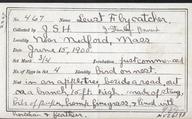 No. 467 Name Least Flycatcher.
Collected by J S H
Locality Near Medford, Mass
Date June 15, 1900
Set Mark 3/4 Incubation just commenced
No. of Eggs in 4 Identity bird on nest.
Nest in an appletree, beside a road, out
on a branch, 10 ft. high, made of string,
bits of paper, hemp, fine grass, & lined with
horsehair & feathers